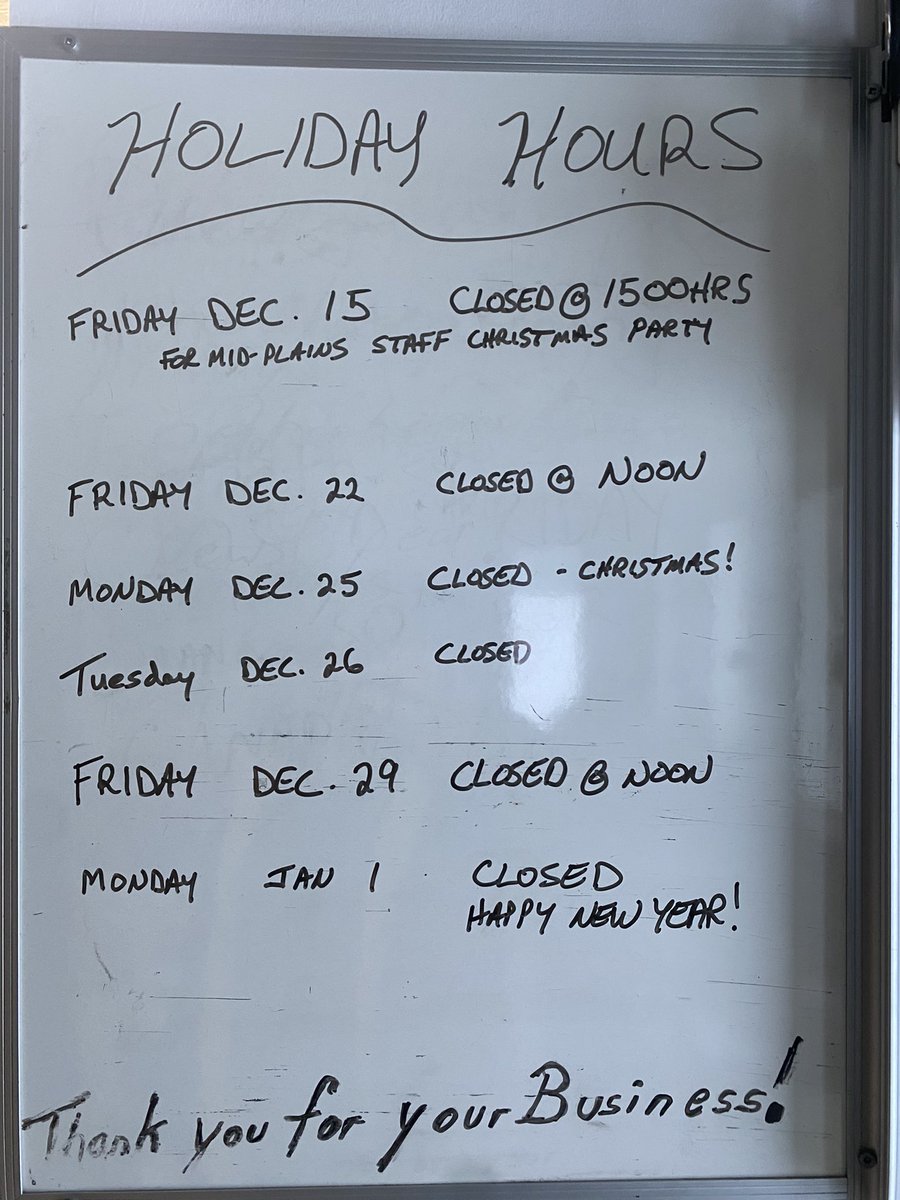 HOLIDAY HOURS
FRIDAY DEC. 15 CLOSED @ 1500HRS
FOR MID-PLAINS STAFF CHRISTMAS PARTY
FRIDAY DEC. 22 CLOSED @ NOON
MONDAY DEC. 25 CLOSED - CHRISTMAS!
Tuesday DEC. 26 CLOSED
FRIDAY DEC. 29 CLOSED @ NOON
MONDAY JAN 1 CLOSED
HAPPY NEW YEAR!
Thank you for your Business!